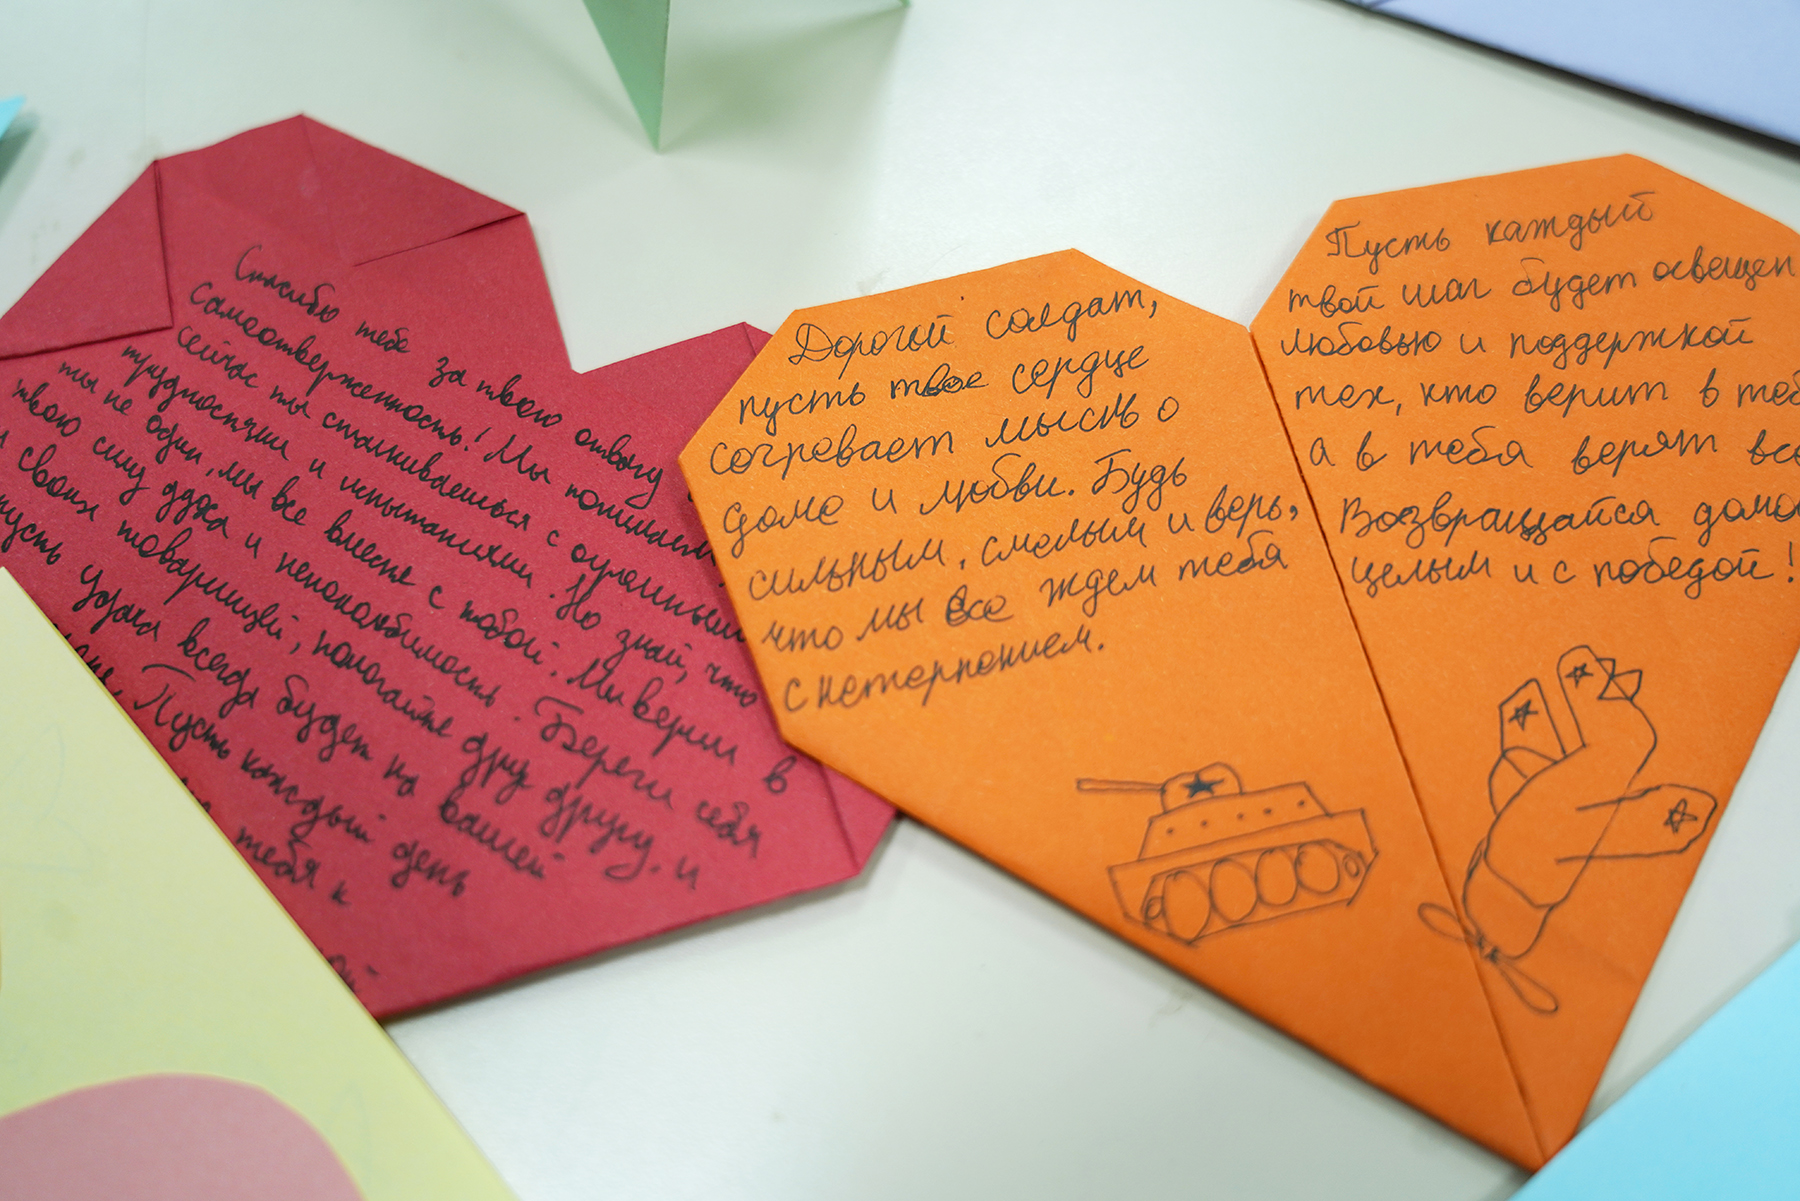 Спасибо тебе за твою отвагу
самоотверженность! Мы понимаем
сейчас ты сталкиваешься с огромными
трудностями и испытаниями. Но знай, что
ты не один, мы все вместе с тобой. Мы верим в
твою силу духа и непоколебимость. Береги себя
своих товарищей, помогайте друг другу. и
пусть удача всегда будет на вашей
Пусть каждый день
тебя к
Дорогой солдат,
пусть твое сердце
согревает мысль о
доме и любви. Будь
сильным, смелым и верь,
что мы все ждем тебя
с нетерпением.
Пусть каждый
твой шаг будет освещен
любовью и поддержкой
тех, кто верит в теб
а в тебя верят все
Возвращайся домо
целым и с победой!